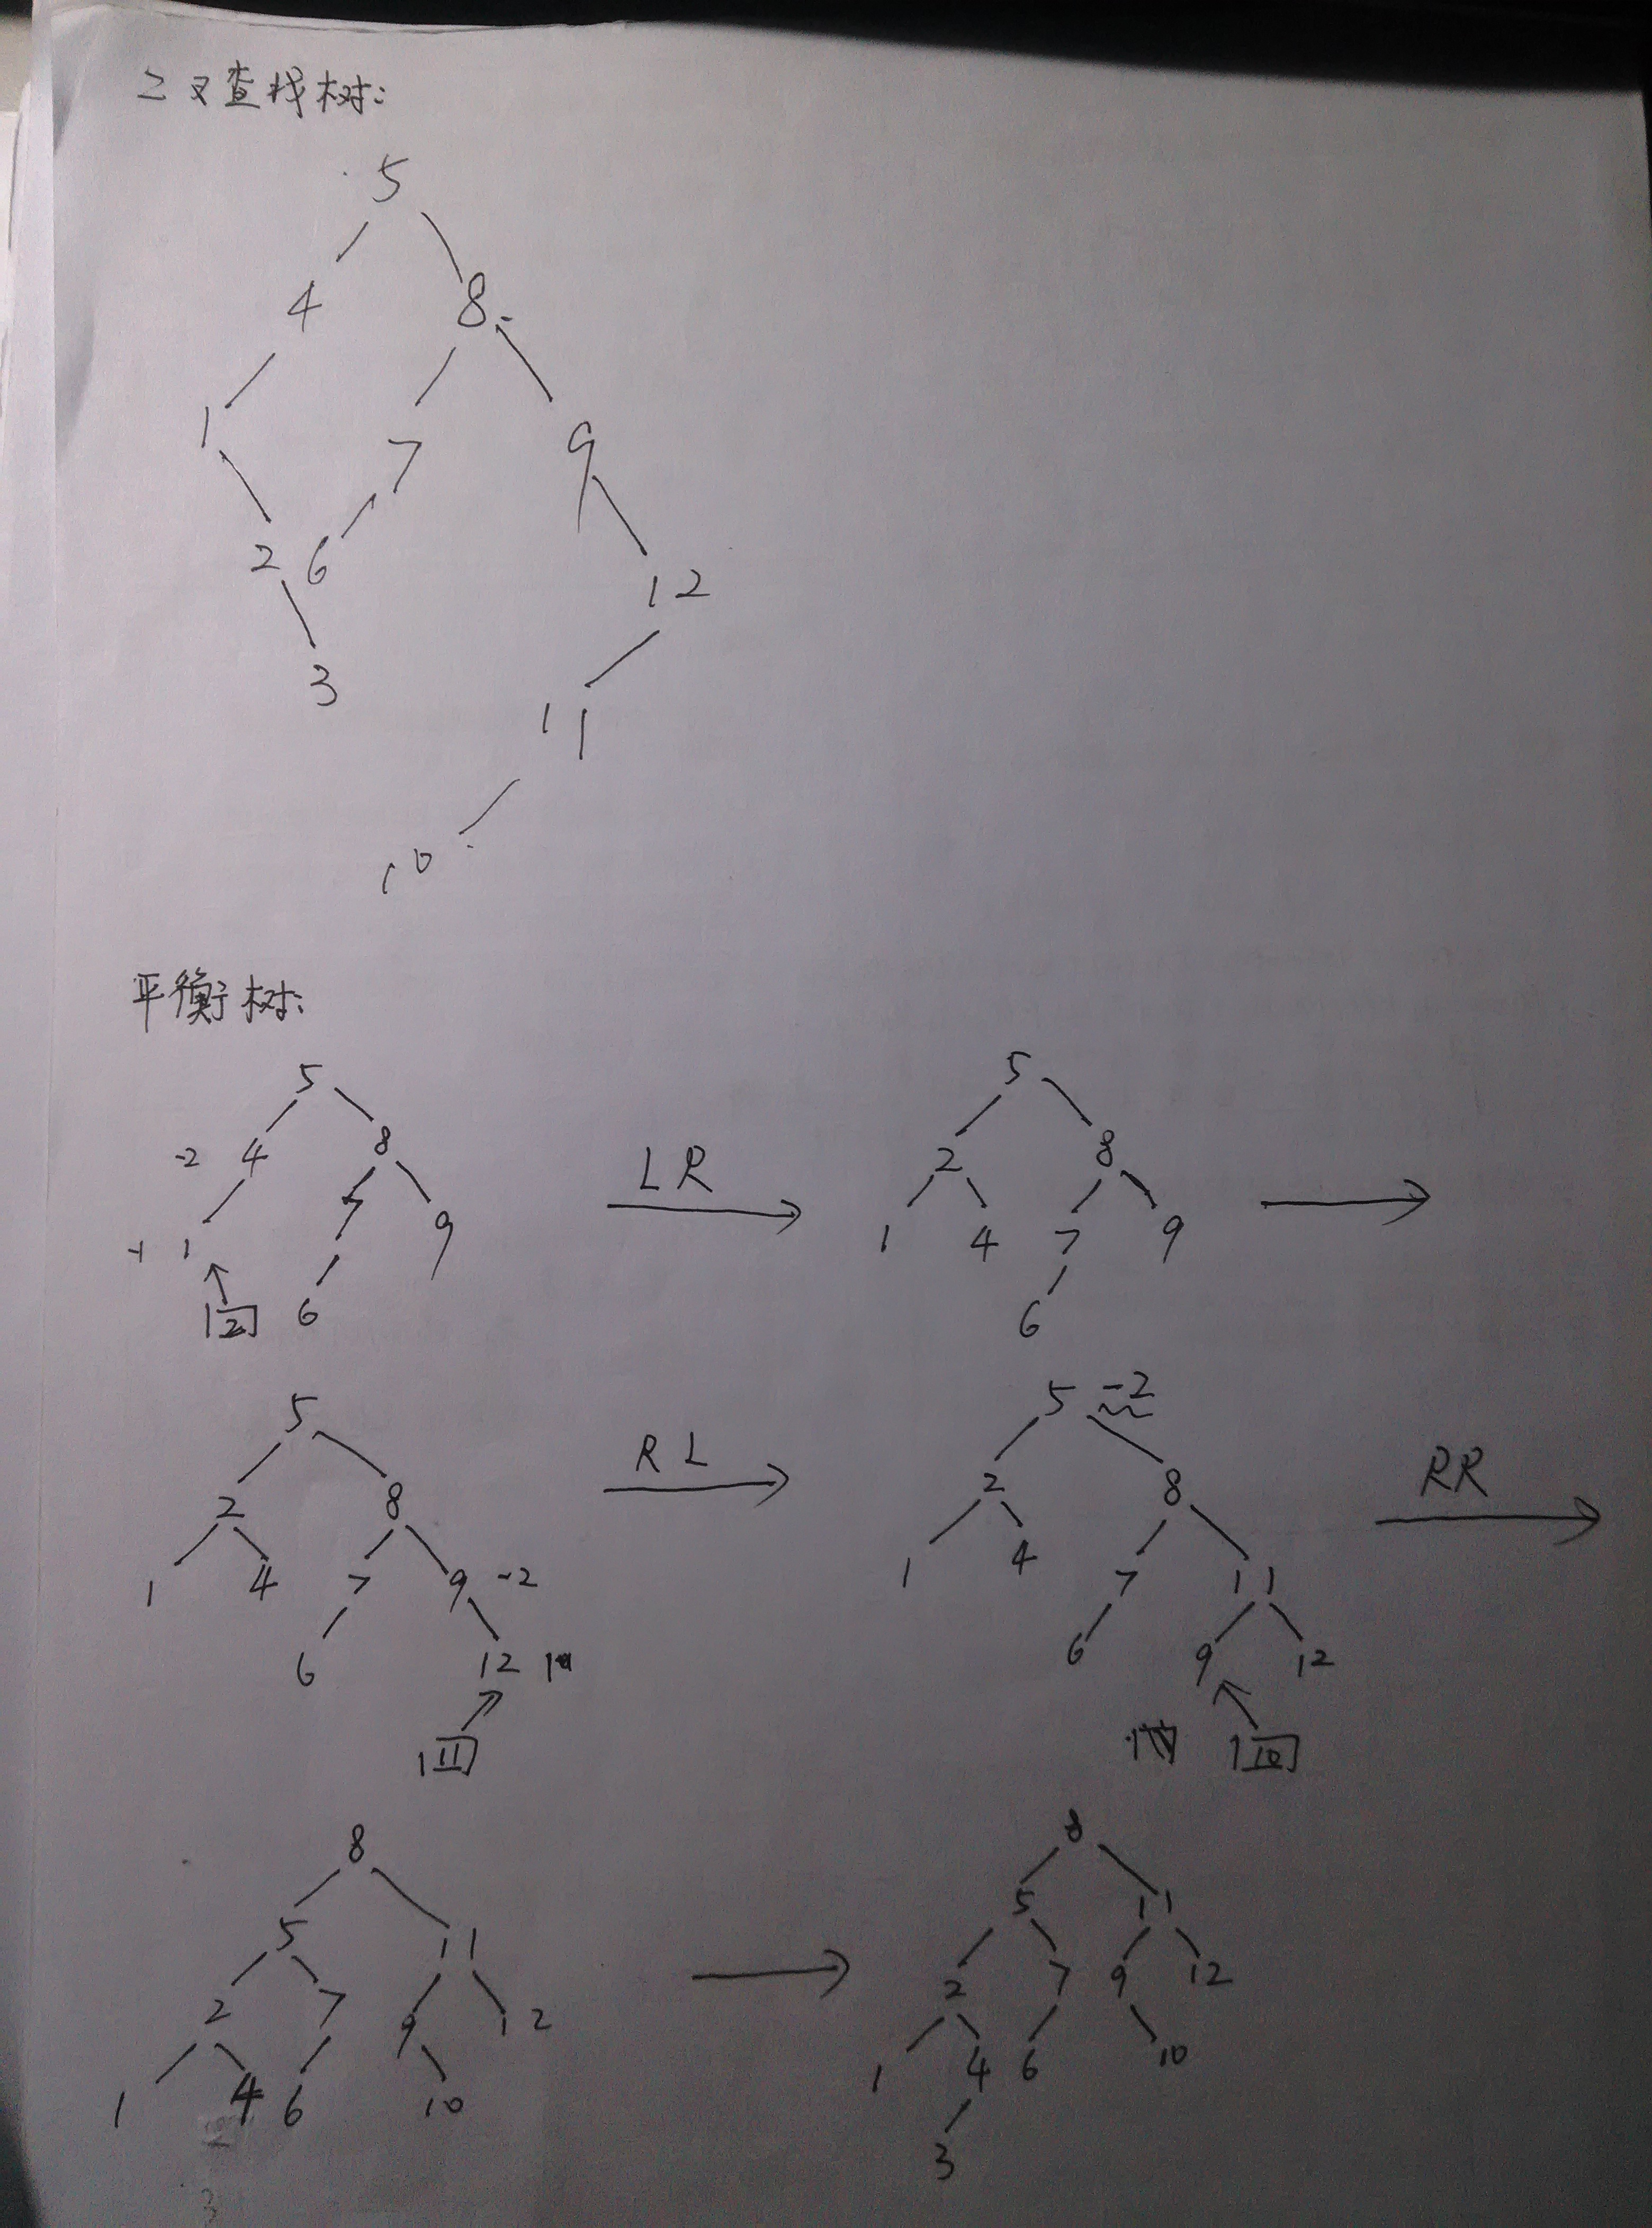 二叉查找树:
5
4 8
1 7 9
2 6 12
3
11
10
平衡树:
5
-2 4 8
-1 1 7 9
2 6
LR
5
2 8
1 4 7 9
6
5
2 8
1 4 7 9 -2
6 12 1
11
RL
5 -2
2 8
1 4 7 11
6 9 12
10
RR
8
5 11
2 7 9 12
1 4 6 10
8
5 11
2 7 9 12
1 4 6 10
3